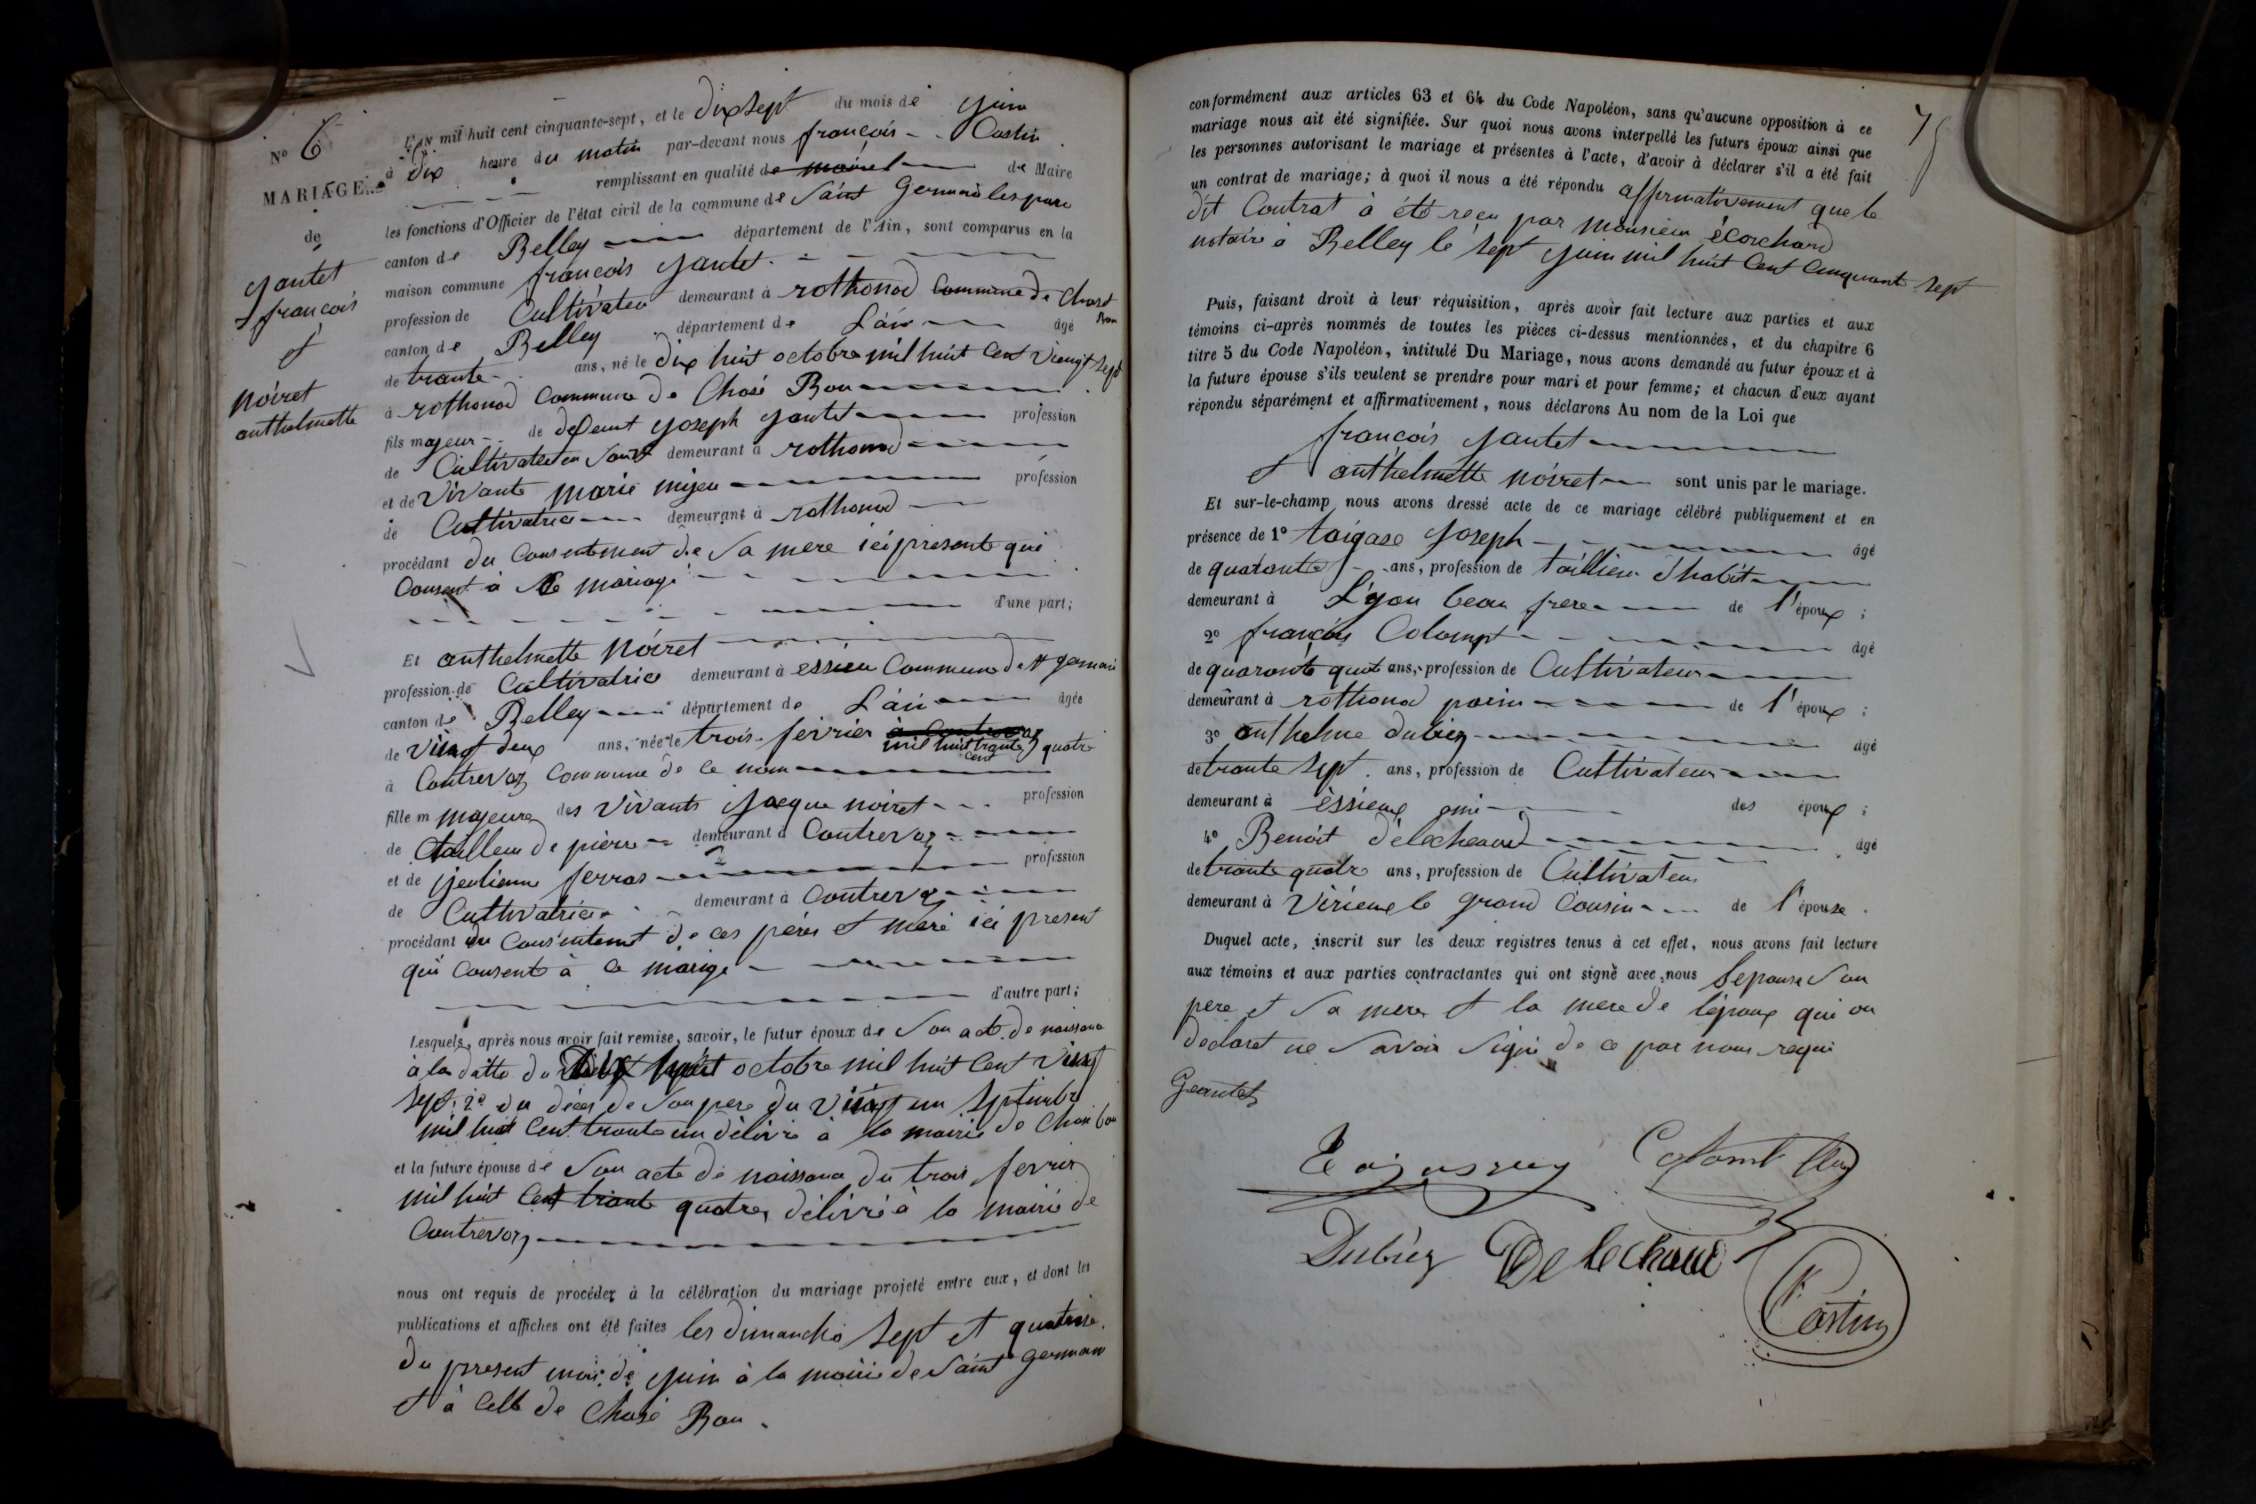 N° 6
MARIAGE
de
Jantet
françois
et
Noiret
anthelmette
L'AN mil huit cent cinquante-sept, et le dix sept du mois de juin
à dix heure du matin par-devant nous françois Castin
remplissant en qualité de maire de Maire
les fonctions d'Officier de l'état civil de la commune de Saint Germain les paro
canton de Belley département de l'Ain, sont comparus en la
maison commune françois Jantet
profession de Cultivateur demeurant à rothonod Commune de Chasé Bon
canton de Belley département de L'ain âgé
de trante ans, né le dix huit octobre mil huit Cent viengt sept
à rothonod Commune de Chasé Bon
fils majeur de defeunt joseph jantet profession
de Cultivateur demeurant à rothonod
et de Vivante marie mijeu profession
de Cultivatrice demeurant à rothonod
procédant du Consentement de Sa mere ici presente qui
Consent à Ce mariage
d'une part;
Et anthelmette Noiret
profession de Cultivatrice demeurant à essieu Commune de st germain
canton de Belley département de L'ain âgée
de vingt deux ans, née le trois fevrier à Contrevoz mil huit cent trante quatre
à Contrevoz Commune de Ce nom
fille m majeure des Vivants Jacque noiret profession
de tailleur de pierre demeurant à Contrevoz
et de jeulienne ferras profession
de Cultivatrice demeurant à Contrevoz
procédant du Consentemt de ces péres et mere ici present
qui Consent à Ce marige
d'autre part;
Lesquels, après nous avoir fait remise, savoir, le futur époux de Son acte de naissance
à la datte du Dix huit octobre mil huit Cent vingt
sept. 2° du déces de Son pere du vingt un Septembre
mil huit Cent trante un délivré à la mairie de Chasé bon
et la future épouse de Son acte de naissance du trois fevrier
mil huit Cent trante quatre, délivré à la mairie de
Contrevoz
nous ont requis de procéder à la célébration du mariage projeté entre eux, et dont les
publications et affiches ont été faites les dimanche sept et quatorze
du present mois de juin à la mairie de Saint Germain
et à Celle de Chasé Bon.
75
conformément aux articles 63 et 64 du Code Napoléon, sans qu'aucune opposition à ce
mariage nous ait été signifiée. Sur quoi nous avons interpellé les futurs époux ainsi que
les personnes autorisant le mariage et présentes à l'acte, d'avoir à déclarer s'il a été fait
un contrat de mariage; à quoi il nous a été répondu affirmativement que le
dit Contrat à été reçu par monsieur écorchard
notaire à Belley le sept juin mil huit Cent Cinquant sept
Puis, faisant droit à leur réquisition, après avoir fait lecture aux parties et aux
témoins ci-après nommés de toutes les pièces ci-dessus mentionnées, et du chapitre 6
titre 5 du Code Napoléon, intitulé Du Mariage, nous avons demandé au futur époux et à
la future épouse s'ils veulent se prendre pour mari et pour femme; et chacun d'eux ayant
répondu séparément et affirmativement, nous déclarons Au nom de la Loi que
françois jantet
et anthelmette Noiret sont unis par le mariage.
Et sur-le-champ nous avons dressé acte de ce mariage célébré publiquement et en
présence de 1° taigase joseph âgé
de quarante ans, profession de taillieur d'habit
demeurant à Lyon beau frere de l'époux;
2° françois Colompt âgé
de quarante ans, profession de Cultivateur
demeurant à rothonod de l'époux;
3° anthelme dubiez âgé
de trante sept. ans, profession de Cultivateur
demeurant à èssieux ami des époux;
4° Benoit délecheaud âgé
de trante quatre ans, profession de Cultivateur
demeurant à Virieux le grand Cousin de l'épouse.
Duquel acte, inscrit sur les deux registres tenus à cet effet, nous avons fait lecture
aux témoins et aux parties contractantes qui ont signé avec nous l'epouse Son
pere et Sa mere et la mere de l'époux qui on
declaret ne Savoir Signe de ce par nous requi
Geantet
Colomb
Dubiez Delechaud
Castin